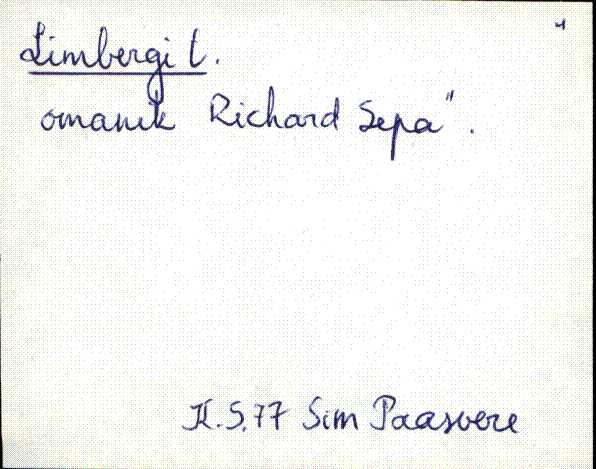 Limbergi t.
omanik Richard Sepa".
K.S.77 Sim Paasvere